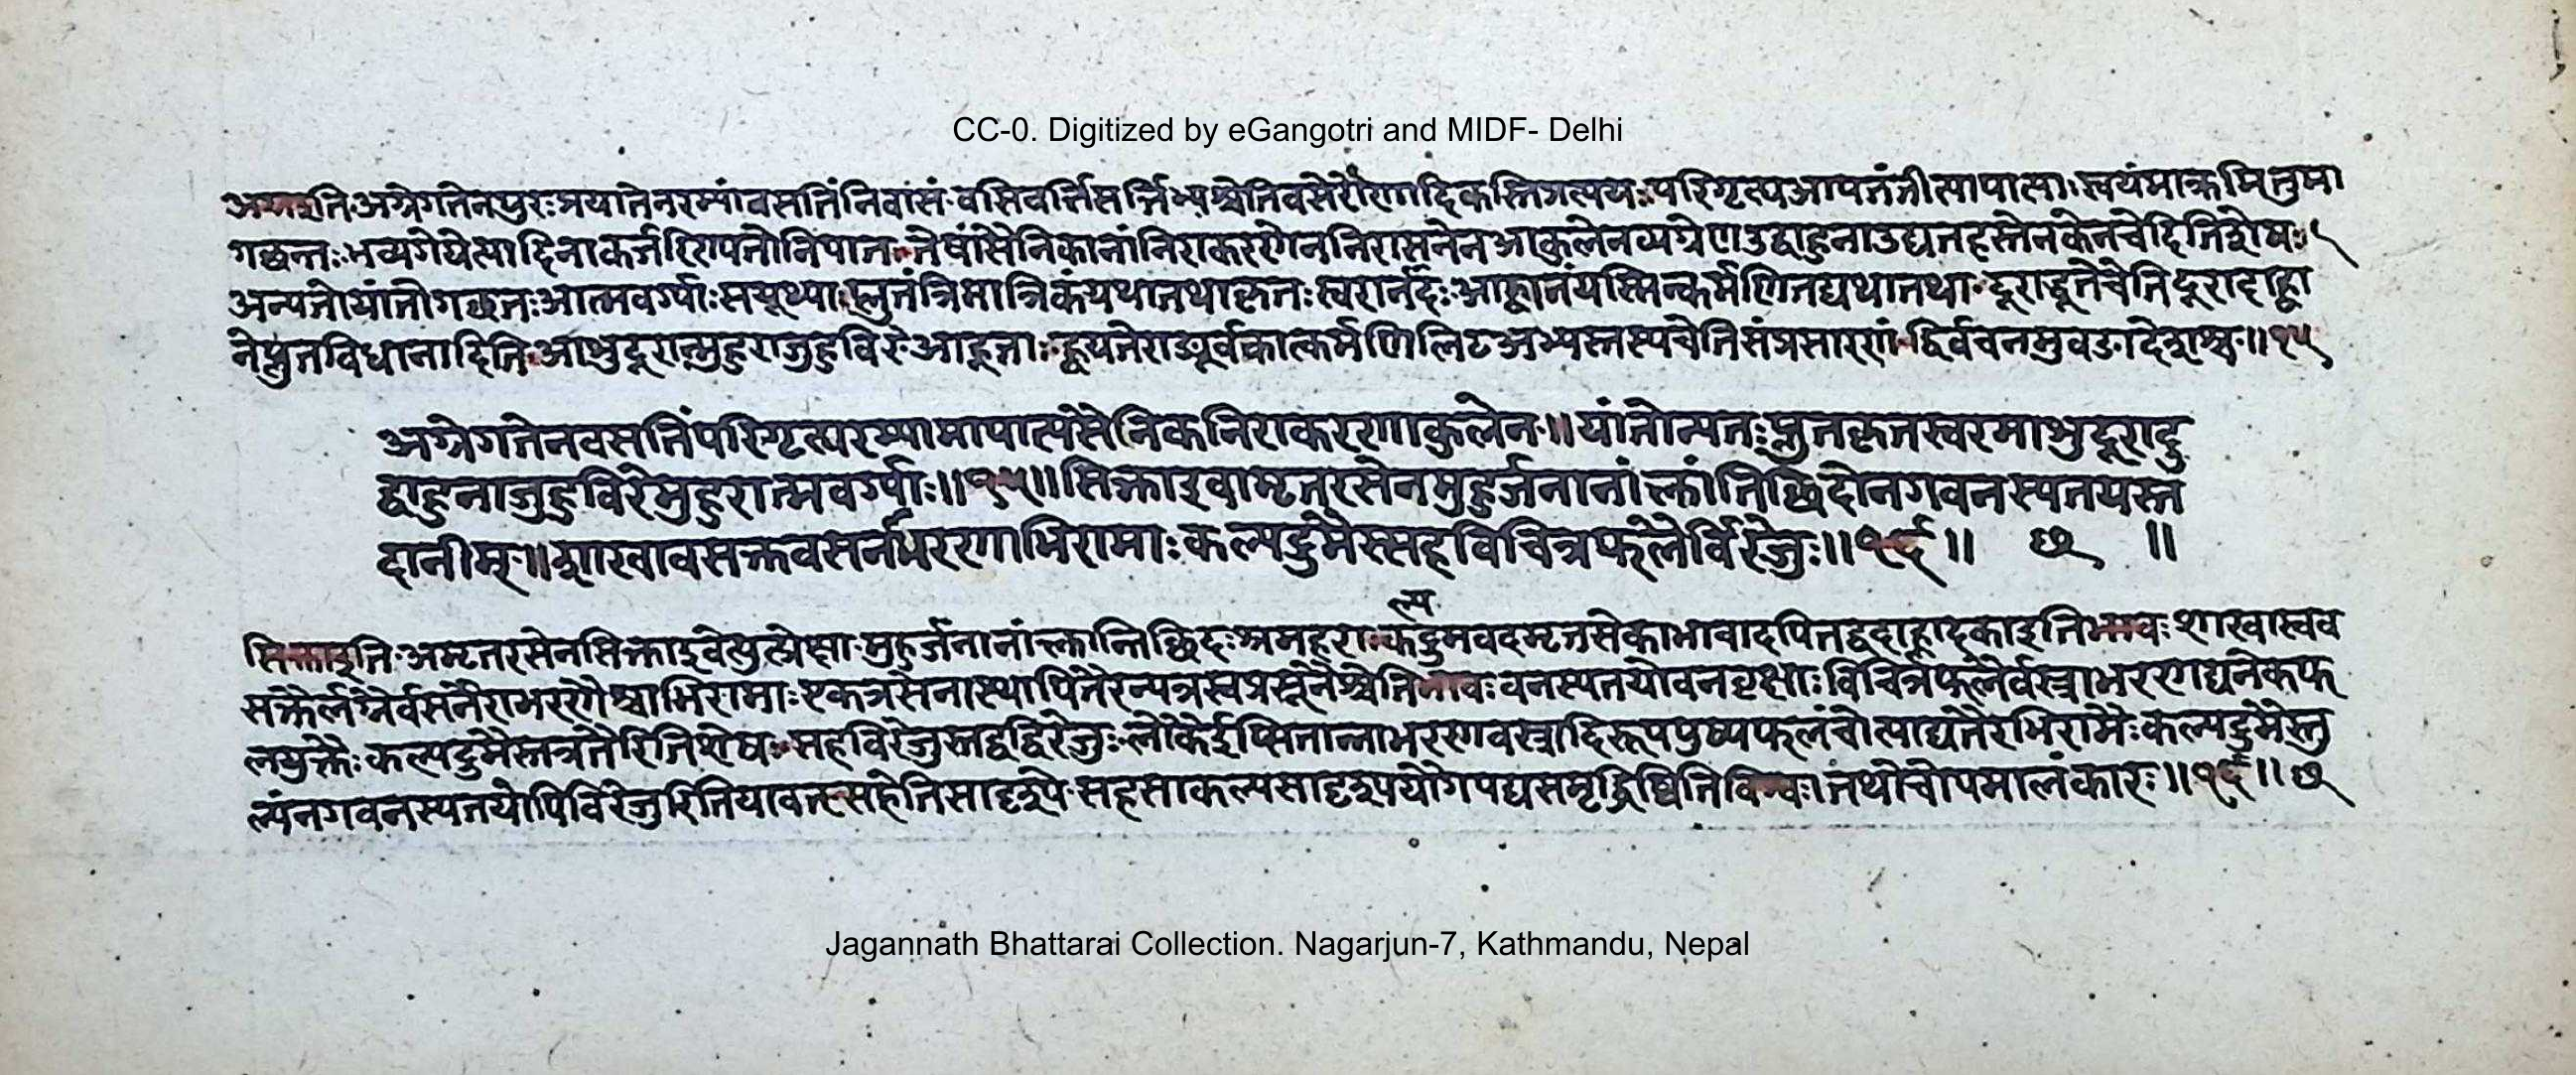 CC-0. Digitized by eGangotri and MIDF- Delhi
अग्रइति अग्रेगतेनपुरःप्रयातेनरम्यांवसतिंनिवासं वसिवर्त्तिसर्त्तिभ्यश्चेतिवसेरौणादिकस्तिप्रत्ययः परिगृह्यआपतंतीत्यापात्याः स्वयंमाक्रमितुमा
गछन्तः भव्यगेयेत्यादिनाकर्तरिण्यतोनिपातः तेषांसैनिकानांनिराकरणेननिरासनेनआकुलेनव्यग्रेणउद्वाहुनाउद्यतहस्तेनकेनचेदितिशेषः
अन्यतोयांतोगछतःआत्मवर्ग्याःसयूथ्याः प्लुतंत्रिमात्रिकंयथातथाकृतःस्वरार्नदः आह्वानंयस्मिन्कर्मणितद्यथातथा दूराद्धूतेचेतिदूरादाह्वा
नेप्लुतविधानादिति आशुदूरान्मुहुराजुहुविरे आहूताः ह्वयतेराङ्पूर्वकात्कर्मणिलिट अभ्यस्तस्यचेतिसंप्रसारणं द्विर्वचनमुवङादेशश्च ॥१५
अग्रेगतेनवसतिंपरिगृह्यरम्यामापात्यसैनिकनिराकरणाकुलेन ॥ यांतोन्यतःप्लुतकृतस्वरमाशुदूरादु
द्वाहुनाजुहुविरेमुहुरात्मवर्ग्याः ॥१५॥ सिक्ताइवामृतरसेनमुहुर्जनानांक्लांतिछिदोनगवनस्पतयस्त
दानीम् ॥ शाखावसक्तवसनभरणाभिरामाः कल्पद्रुमैस्सहविचित्रफलैर्विरेजुः ॥१६॥ छ ॥
ल्प
सिक्ताइति अमृतरसेनसिक्ताइवेत्युत्प्रेक्षा मुहुर्जनानांक्लान्तिछिदः श्रमहराः कद्रुमवदमृतसेकाभावादपितद्वदाह्लादकाइतिभावः शाखास्वव
सक्तैर्लग्नैर्वसनैराभरणैश्चाभिरामाः एकत्रसेनास्थापितैरन्यत्रस्वप्रसूतैश्चेतिभावः वनस्पतयोवनवृक्षाः विचित्रफलैर्वस्त्राभरणद्यनेकफ
लयुक्तैः कल्पद्रुमैस्तत्रतैरितिशेषः सहविरेजुस्तद्वद्विरेजुः लोकेईप्सितान्नाभरणवस्त्रादिरूपपुष्पफलंचोत्पाद्यतैरभिरामैः कल्पद्रुमैस्तु
ल्यंनगवनस्पतयोपिविरेजुरितियावत् सहेतिसादृश्ये सहसाकल्यसादृश्ययौगपद्यसमृद्धिष्वितिविश्वः। तथोचोपमालंकारः ॥१६॥ छ
Jagannath Bhattarai Collection. Nagarjun-7, Kathmandu, Nepal